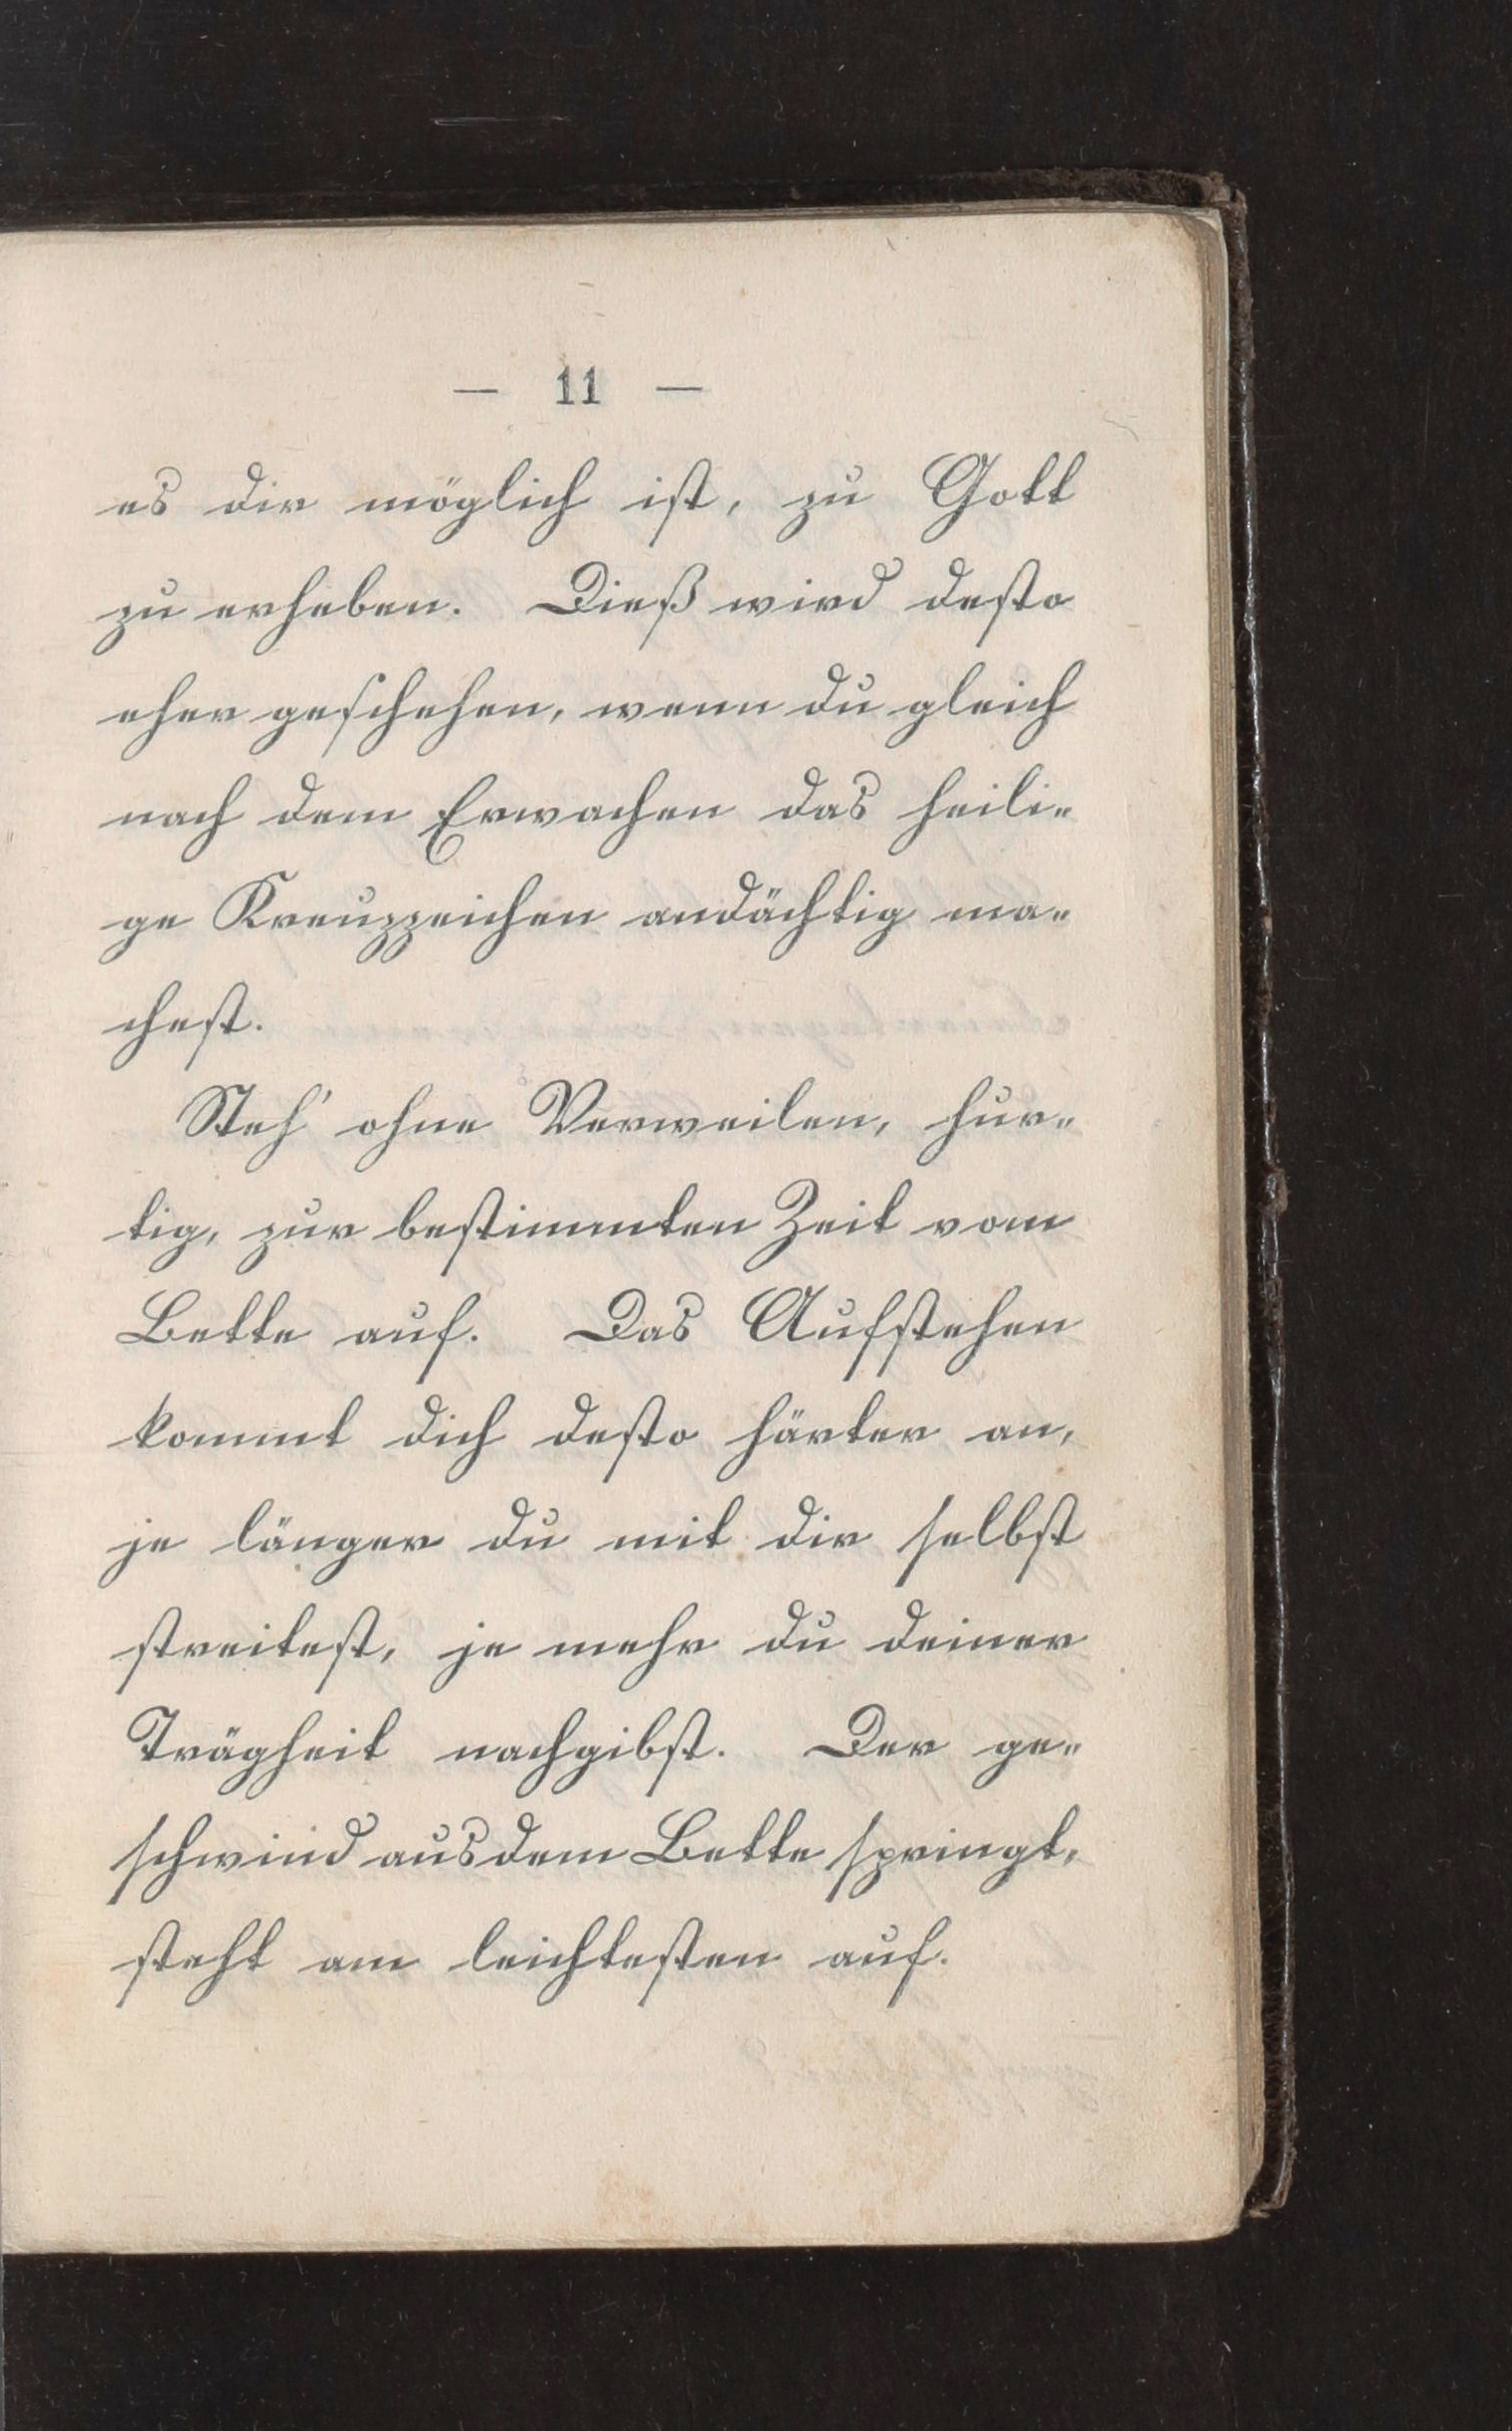 — 11 —
es dir möglich ist, zu Gott
zu erheben. Dieß wird desto
eher geschehen, wenn du gleich
nach dem Erwachen das heili-
ge Kreuzzeichen andächtig ma-
chest.
Steh' ohne Verweilen, hur-
tig, zur bestimmten Zeit vom
Bette auf. Das Aufstehen
kommt dich desto härter an,
je länger du mit dir selbst
streitest, je mehr du deiner
Trägheit nachgibst. Der ge-
schwind aus dem Bette springt,
steht am leichtesten auf.